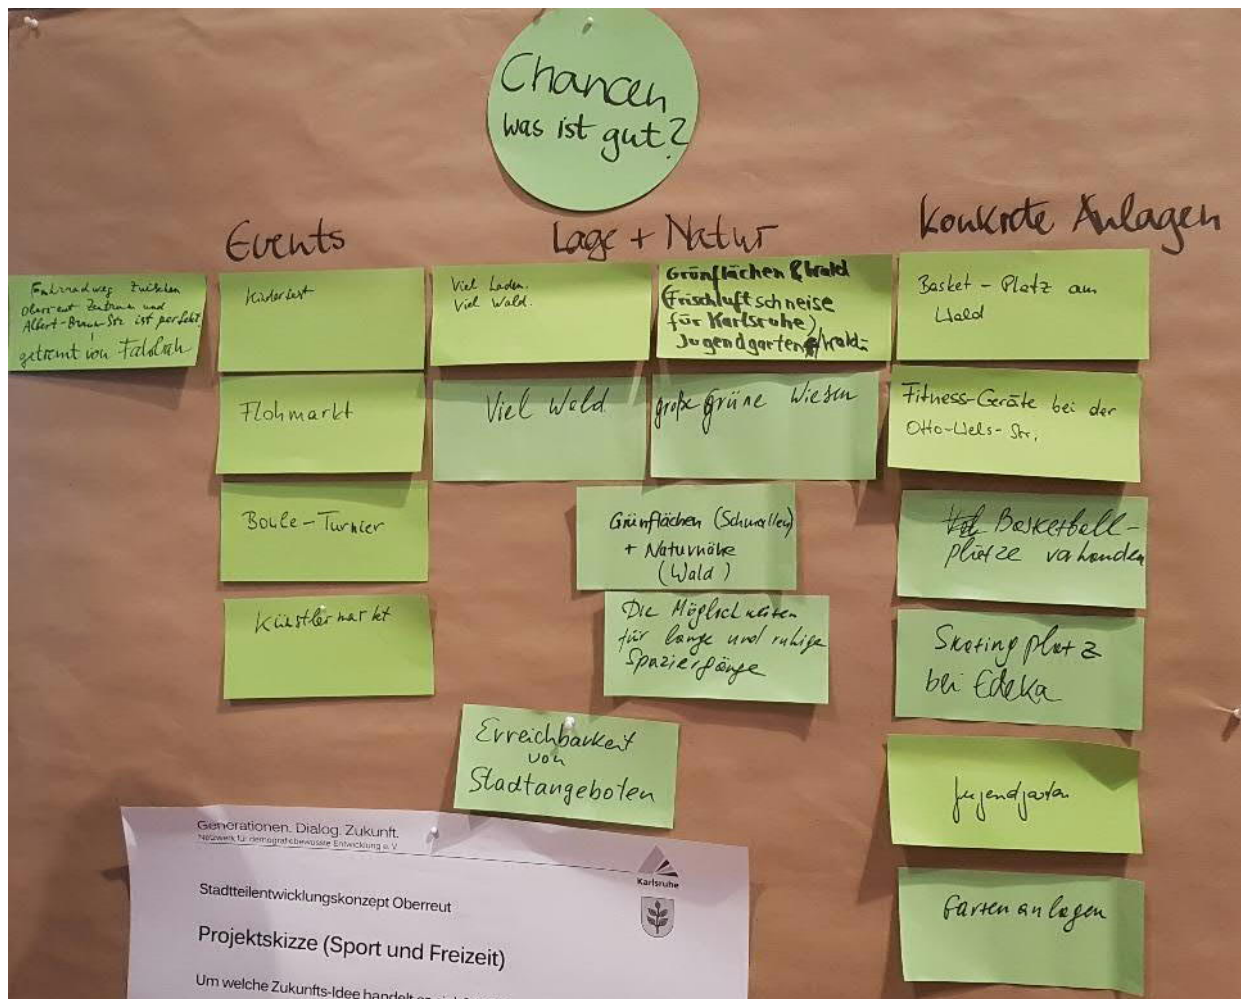 Chancen
was ist gut?
Events
Fahrradweg zwischen
Oberreut Zentrum und
Albert-Braun-Str ist perfekt!
getrennt von
Kinderfest
Flohmarkt
Boule-Turnier
Künstlermarkt
Lage + Natur
Viel Laden.
Viel Wald.
Grünflächen & Wald
(Frischluftschneise
für Karlsruhe)
Jugendgarten
Viel Wald
große grüne Wiesen
Grünflächen (Schwellen)
+ Naturnähe
(Wald)
Die Möglichkeiten
für lange und ruhige
Spaziergänge
Erreichbarkeit
von
Stadtangeboten
Konkrete Anlagen
Basket-Platz am
Wald
Fitness-Geräte bei der
Otto-Wels-Str.
Basketball-
plätze vorhanden
Skatingplatz
bei Edeka
Jugendgarten
Gartenanlagen
Generationen. Dialog. Zukunft.
Netzwerk für demografiebewusste Entwicklung e. V.
Karlsruhe
Stadtteilentwicklungskonzept Oberreut
Projektskizze (Sport und Freizeit)
Um welche Zukunfts-Idee handelt es sich